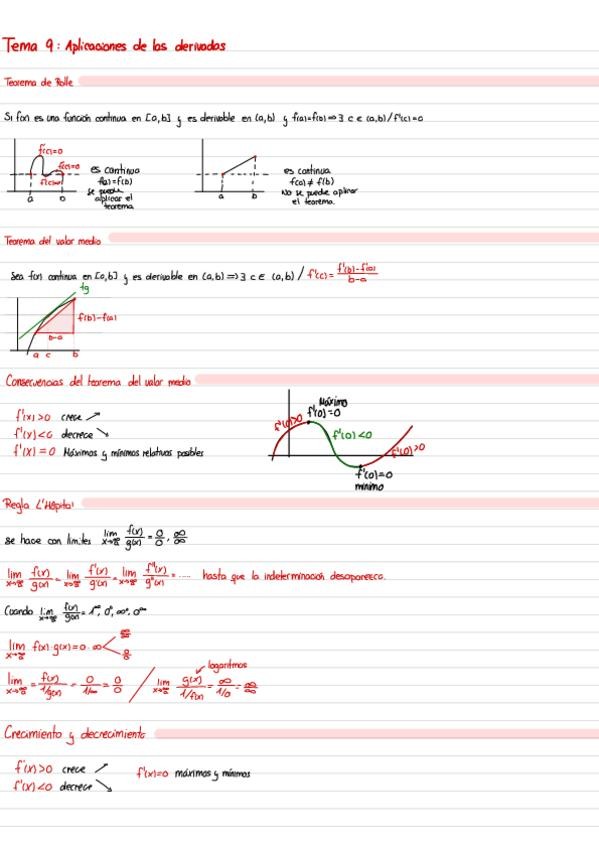 Tema 9: Aplicaciones de las derivadas
Teorema de Rolle
Si f(x) es una función continua en [a,b] y es derivable en (a,b) y f(a)=f(b) ⇒ ∃ c ∈ (a,b) / f'(c)=0
f'(c)=0
f'(c)=0
es continua
f(a)=f(b)
se puede
aplicar el
teorema
a b
es continua
f(a) ≠ f(b)
No se puede aplicar
el teorema.
a b
Teorema del valor medio
Sea f(x) continua en [a,b] y es derivable en (a,b) ⇒ ∃ c ∈ (a,b) / f'(c) = f'(b)-f'(a) / b-a
tg
f(b)-f(a)
b-a
a c b
Consecuencias del teorema del valor medio
f'(x)>0 crece ↗
f'(x)<0 decrece ↘
f'(x)=0 Máximos y mínimos relativos posibles
Máximo
f'(0)=0
f'(0)>0
f'(0)<0
f'(0)>0
f'(0)=0
mínimo
Regla L'Hôpital
se hace con límites lim f(x)/g(x) = 0/0, ∞/∞
lim f(x)/g(x) = lim f'(x)/g'(x) = lim f''(x)/g''(x) = ..... hasta que la indeterminación desaparezca.
Cuando lim f(x)/g(x) =
lim f(x)·g(x)=0·∞
logaritmos
lim = f(x)/1/g(x) = 0/1/∞ = 0/0 / lim g(x)/1/f(x) = ∞/1/0 = ∞/∞
Crecimiento y decrecimiento
f'(x)>0 crece ↗ f'(x)=0 máximos y mínimos
f'(x)<0 decrece ↘